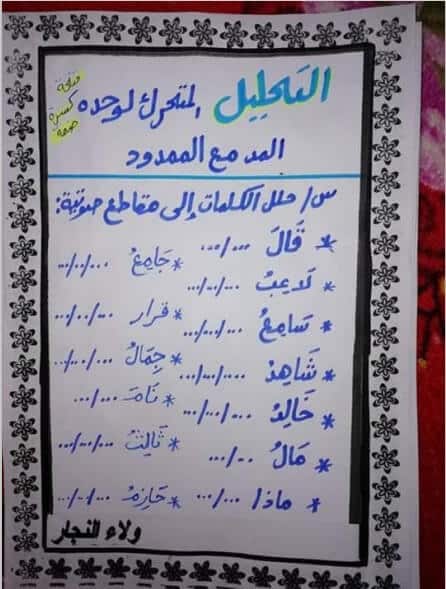 التحليل المتحرك لوحده
فتحة
كسرة
ضمة
المد مع الممدود
س/ حلل الكلمات إلى مقاطع صوتية:
* قَالَ .../...
* جَامِعُ .../../...
* لَاعِبُ .../../...
* قرار .../../...
* سَامِعُ .../../...
* جِمَالُ .../../...
* شَاهِدُ .../../...
* نَامَ .../...
* خَالِدُ .../../...
* ثَالِثُ .../../...
* مَالُ ../...
* ماذا .../...
* حَازِمُ .../../...
ولاء النجار